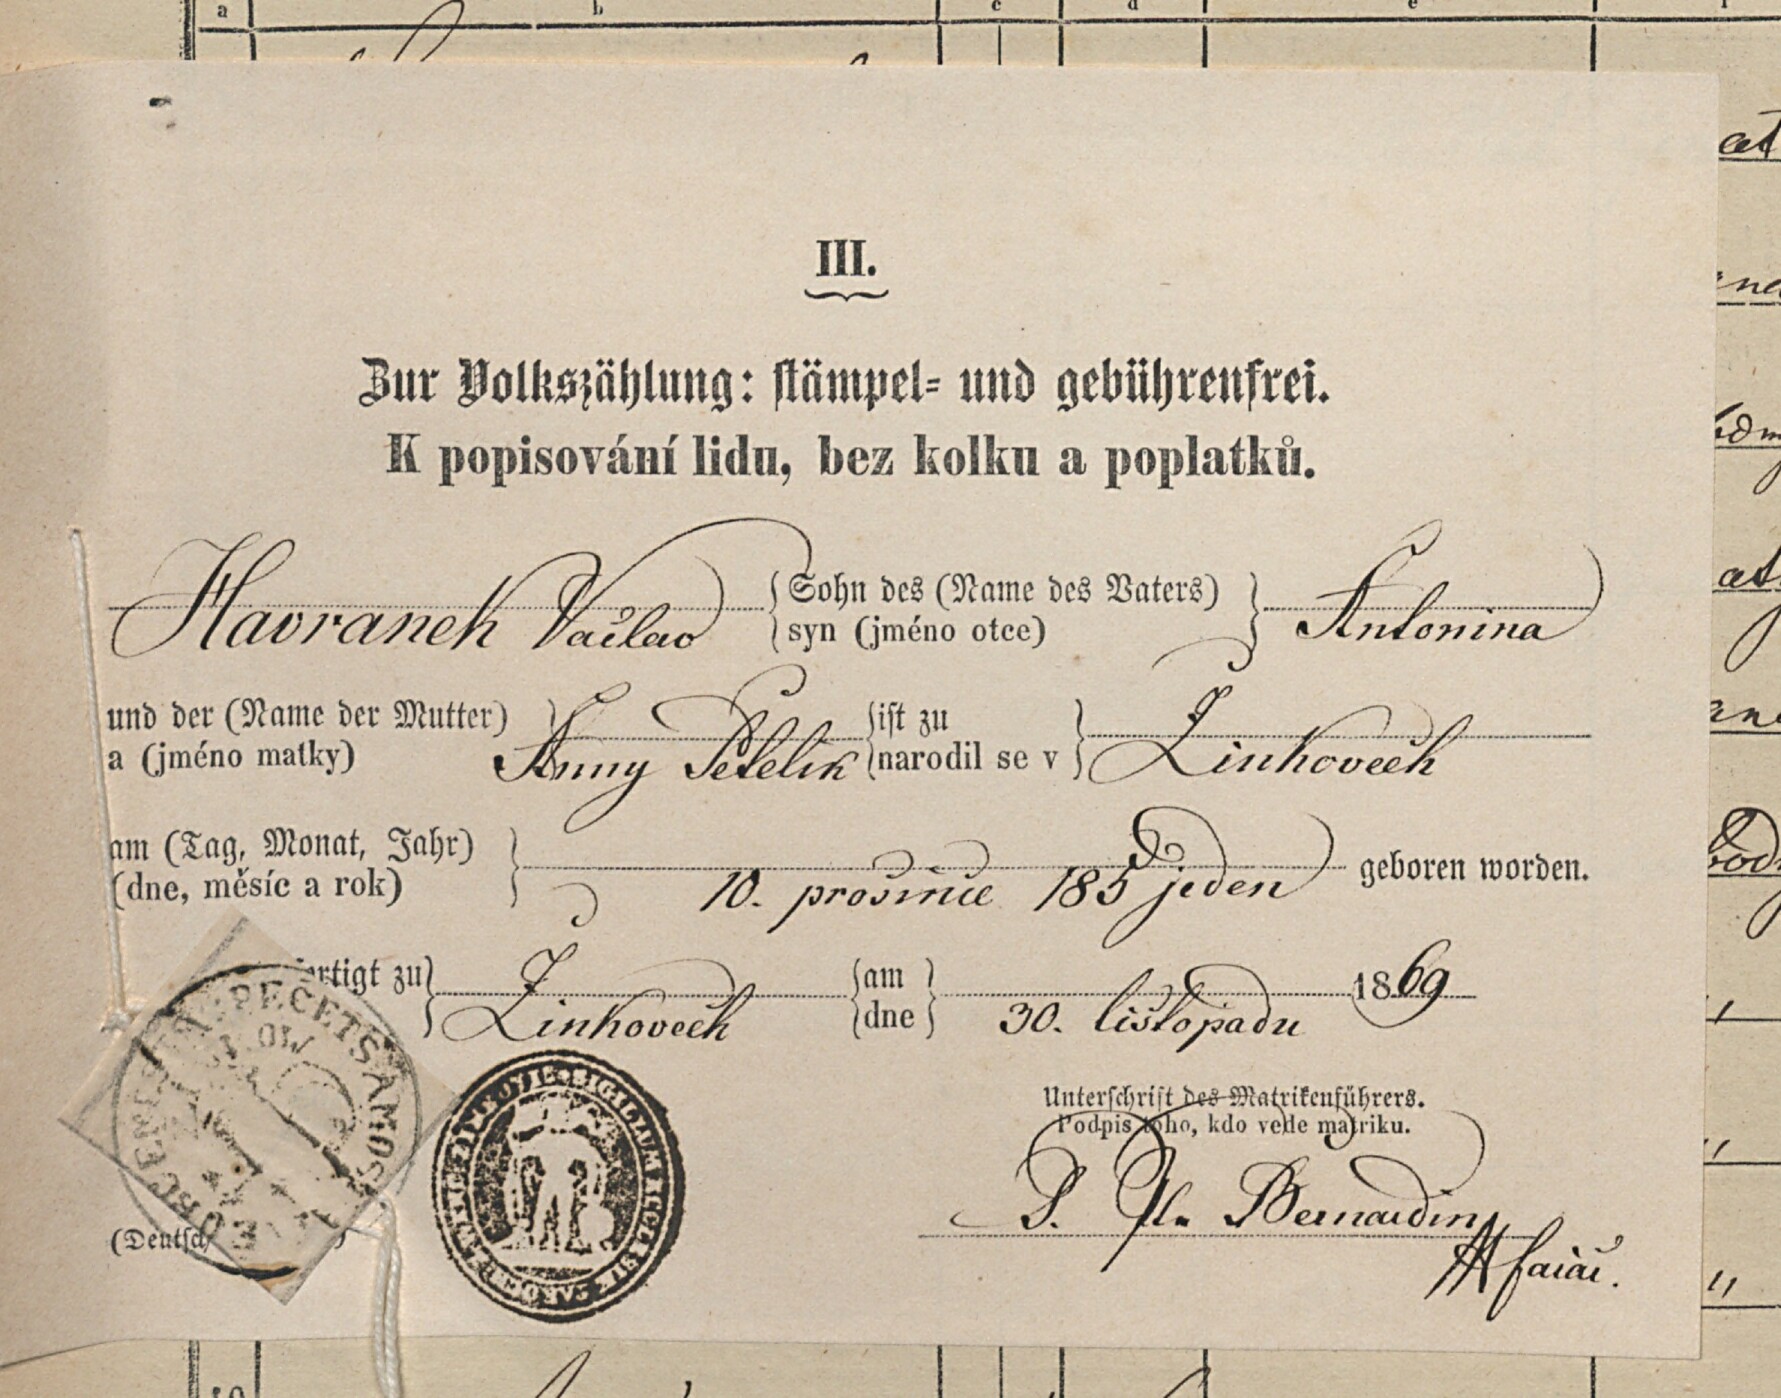 a b c d e
III.
Zur Volkszählung: stämpel- und gebührenfrei.
K popisování lidu, bez kolku a poplatků.
Havranek Václav {Sohn des (Name des Vaters) syn (jméno otce)} Antonina
und der (Name der Mutter) a (jméno matky) } Anny {ist zu narodil se v} Zinkovech
am (Tag, Monat, Jahr) (dne, měsíc a rok) } 10. prosince 185 jeden geboren worden.
ertigt zu} Zinkovech {am dne} 30. listopadu 1869
Unterschrift des Matrikenführers.
Podpis toho, kdo vede matriku.
P. Bernardin
(Deutsch